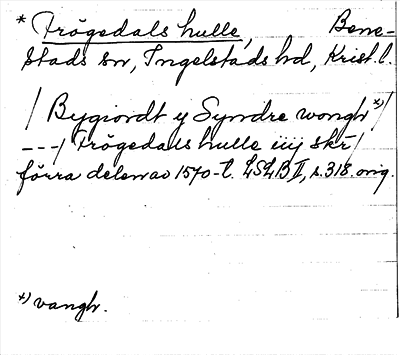 * Frögedals hulle, Bene-
stads sn, Ingelstads hd, Krist. l.
/ Bygiordt y Syndre wongh *)/
---/ Frögedals hulle iiij skr/
förra delen av 1570-t. LSLB II, s. 318. orig.
*) vangh.